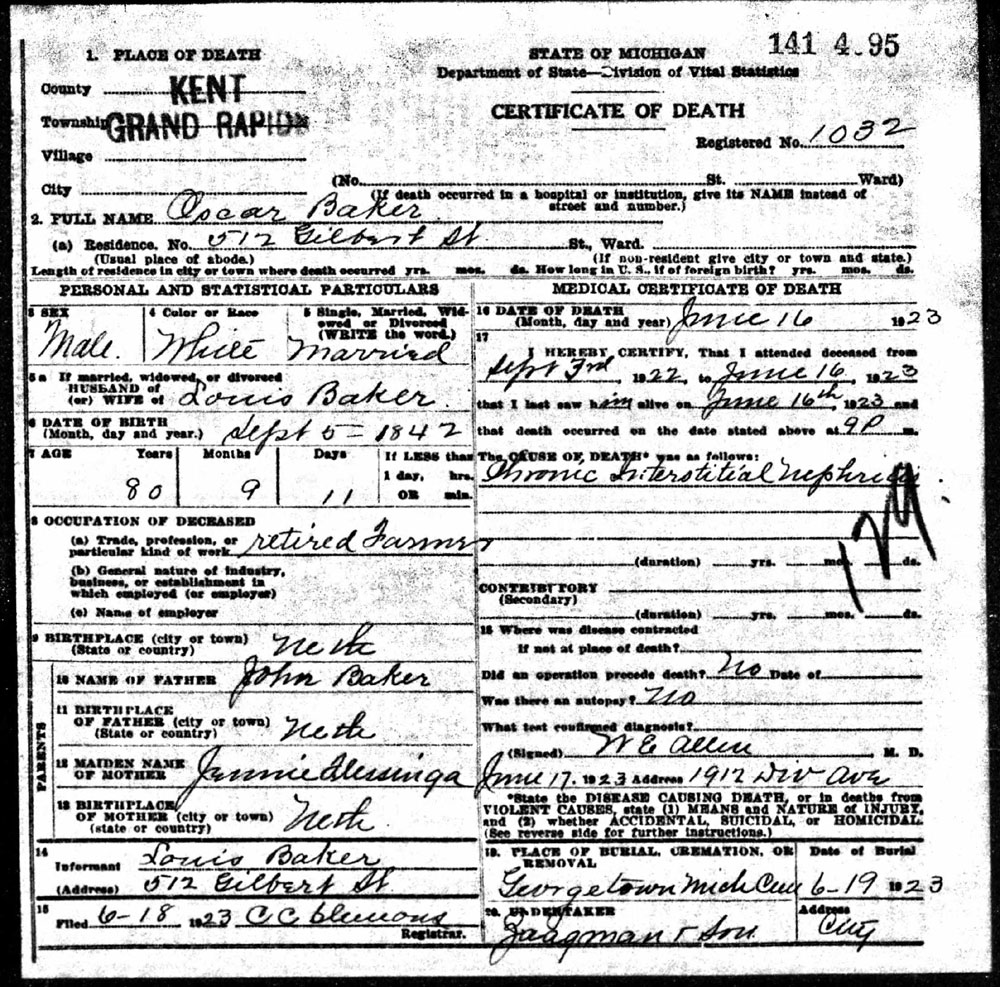 141 4.95
1. PLACE OF DEATH
STATE OF MICHIGAN
Department of State—Division of Vital Statistics
County KENT
CERTIFICATE OF DEATH
Township GRAND RAPIDS
Registered No. 1032
Village
City (No. St. Ward)
(If death occurred in a hospital or institution, give its NAME instead of street and number.)
2. FULL NAME Oscar Baker
(a) Residence. No. 512 Gilbert St. St., Ward.
(Usual place of abode.) (If non-resident give city or town and state.)
Length of residence in city or town where death occurred yrs. mos. ds. How long in U. S., if of foreign birth? yrs. mos. ds.
PERSONAL AND STATISTICAL PARTICULARS
3 SEX
Male.
4 Color or Race
White
5 Single, Married, Widowed or Divorced
(WRITE the word.)
Married
5a If married, widowed, or divorced
HUSBAND of
(or) WIFE of Louis Baker.
6 DATE OF BIRTH
(Month, day and year.) Sept 5 - 1842
7 AGE Years Months Days
80 9 11
If LESS than
1 day, hrs.
OR min.
8 OCCUPATION OF DECEASED
(a) Trade, profession, or
particular kind of work retired Farmer
(b) General nature of industry,
business, or establishment in
which employed (or employer)
(c) Name of employer
9 BIRTHPLACE (city or town)
(State or country) Neth
PARENTS
10 NAME OF FATHER John Baker
11 BIRTHPLACE
OF FATHER (city or town)
(State or country) Neth
12 MAIDEN NAME
OF MOTHER Jennie
13 BIRTHPLACE
OF MOTHER (city or town)
(state or country) Neth.
14
Informant Louis Baker
(Address) 512 Gilbert St
15
Filed 6-18 1923 C C Clemons
Registrar.
MEDICAL CERTIFICATE OF DEATH
16 DATE OF DEATH
(Month, day and year) June 16 1923
17
I HEREBY CERTIFY, That I attended deceased from
Sept 3rd, 1922, to June 16, 1923
that I last saw him alive on June 16th, 1923 and
that death occurred on the date stated above at 9P m.
The CAUSE OF DEATH* was as follows:
Chronic Interstitial Nephritis
129
(duration) yrs. mos. ds.
CONTRIBUTORY
(Secondary)
(duration) yrs. mos. ds.
18 Where was disease contracted
If not at place of death?
Did an operation precede death? No Date of
Was there an autopsy? No
What test confirmed diagnosis?
(Signed) W E Allen M. D.
June 17. 1923 Address 1912 Div Ave
*State the DISEASE CAUSING DEATH, or in deaths from
VIOLENT CAUSES, state (1) MEANS and NATURE of INJURY,
and (2) whether ACCIDENTAL, SUICIDAL, or HOMICIDAL.
(See reverse side for further instructions.)
19. PLACE OF BURIAL, CREMATION, OR REMOVAL
Georgetown Mich Cem
Date of Burial
6-19 1923
20. UNDERTAKER
Zaagman & Son.
Address
City